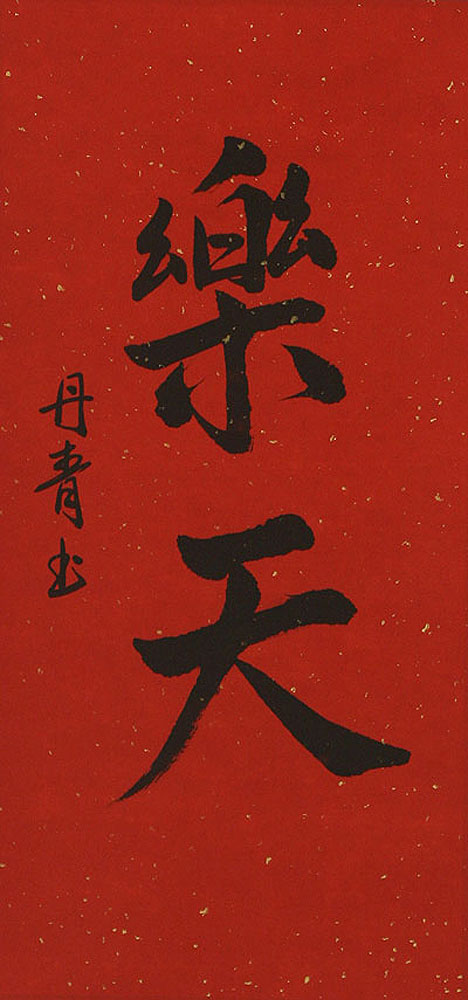 樂天
丹青书